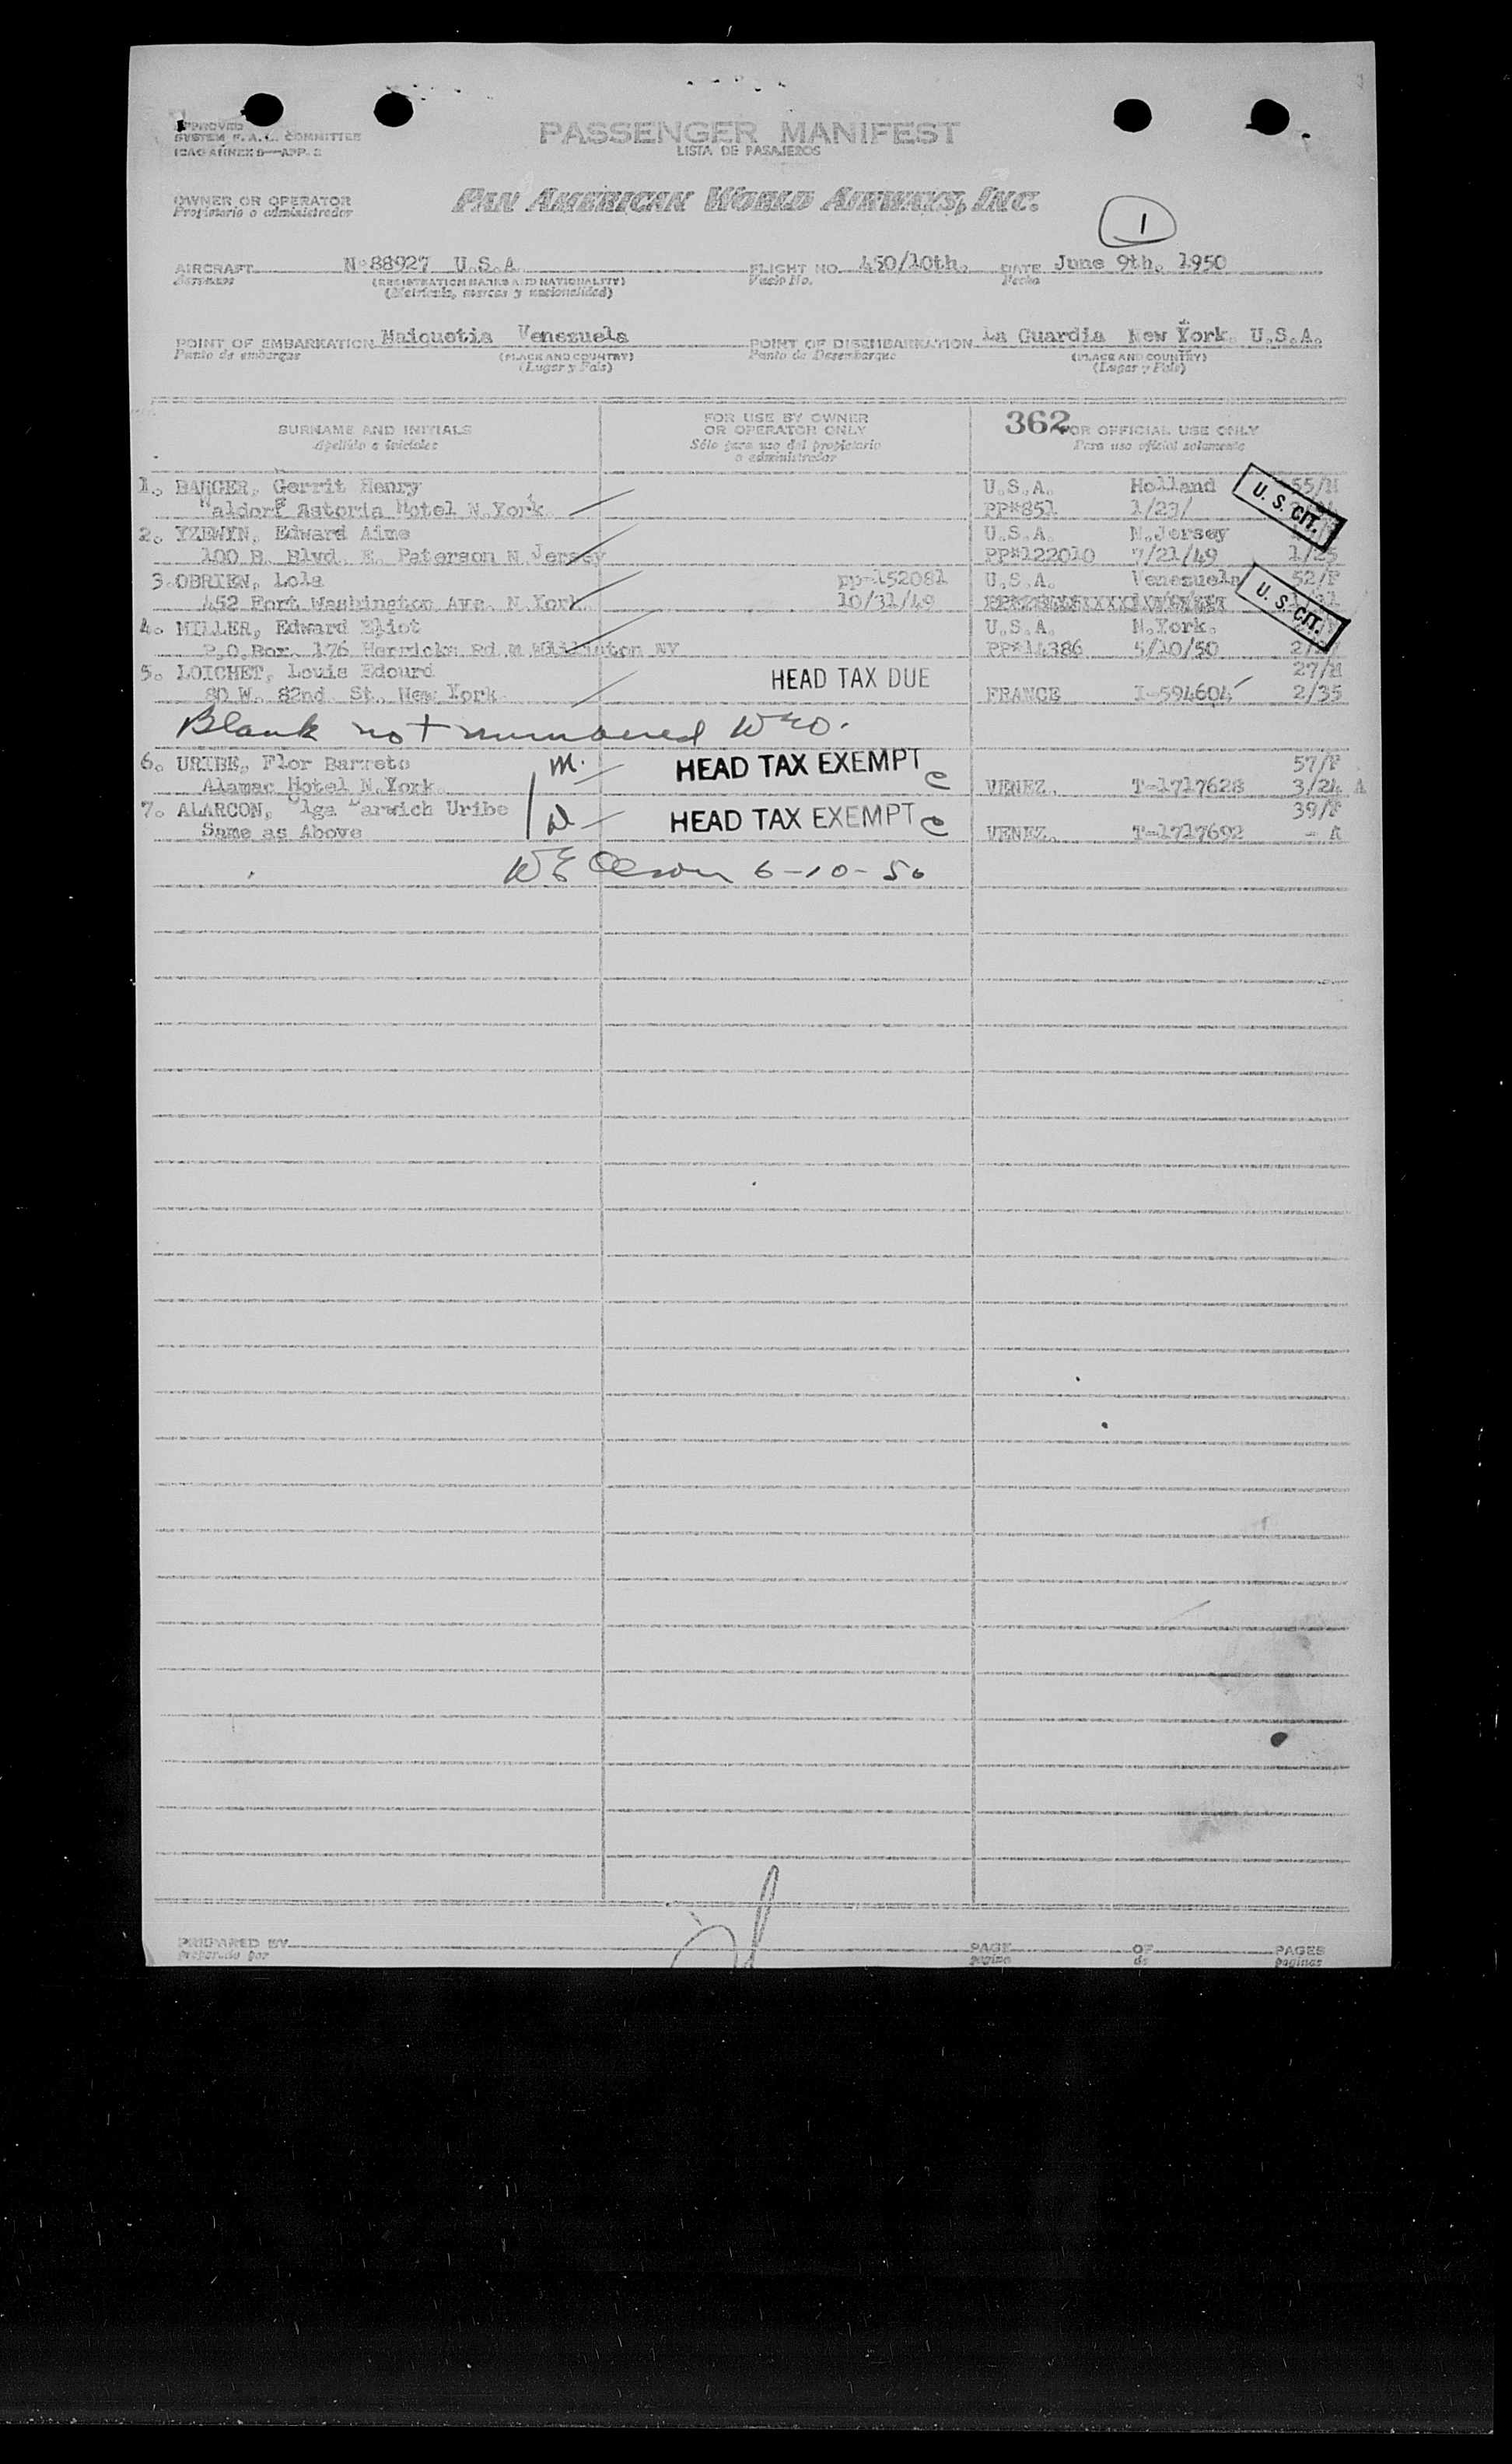 APPROVED
SYSTEM F.A.L. COMMITTEE
ICAO ANNEX 9—APP. 2
PASSENGER MANIFEST
LISTA DE PASAJEROS
OWNER OR OPERATOR
Propietario o administrador
PAN AMERICAN WORLD AIRWAYS, INC.
1
AIRCRAFT N-88927 U.S.A. FLIGHT NO. 450/10th. DATE June 9th. 1950
(REGISTRATION MARKS AND NATIONALITY) Vuelo No. Fecha
(Matrícula, marcas y nacionalidad)
POINT OF EMBARKATION Maiquetia Venezuela POINT OF DISEMBARKATION La Guardia New York. U.S.A.
Punto de embarque (PLACE AND COUNTRY) Punto de Desembarque (PLACE AND COUNTRY)
(Lugar y País) (Lugar y País)
SURNAME AND INITIALS
Apellido e iniciales
FOR USE BY OWNER
OR OPERATOR ONLY
Sólo para uso del propietario
o administrador
362
FOR OFFICIAL USE ONLY
Para uso oficial solamente
1. BARGER, Gerrit Henry U.S.A. Holland 55/M
Waldorf Astoria Hotel N.York PP#851 1/23/
U. S. CIT.
2. YZEWYN, Edward Aime U.S.A. N.Jersey
100 B. Blvd. E. Paterson N.Jersey PP#122010 7/21/49 1/25
3. OBRIEN, Lola pp-152081 U.S.A. Venezuela 52/F
452 Fort Washington Ave. N.York. 10/31/49
U. S. CIT.
4. MILLER, Edward Eliot U.S.A. N.York.
P.O.Box. 176 Herricks Rd. PP#14386 5/10/50
5. LOICHET, Louis Edourd HEAD TAX DUE 27/M
80 W. 82nd. St. New York. FRANCE I-594604 2/35
Blank not numbered WEO.
6. URIBE, Flor Barreto M. HEAD TAX EXEMPT 57/F
Alamac Hotel N.York. VENEZ. T-1717628 3/24 A
7. ALARCON, Olga Darwich Uribe D HEAD TAX EXEMPT 39/F
Same as Above VENEZ. T-1717692 - A
WE Olson 6-10-50
PREPARED BY PAGE OF PAGES
preparado por página de páginas